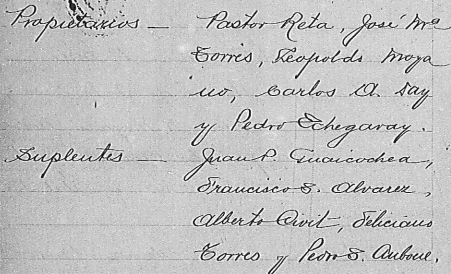 Propietarios — Pastor Reta, José Mª
Torres, Leopoldo Moya
no, Carlos A. Day
y Pedro Echegaray.
Suplentes — Juan P. Guaicochea,
Francisco S. Alvarez,
Alberto Civit, Feliciano
Torres y Pedro S. Aubone.